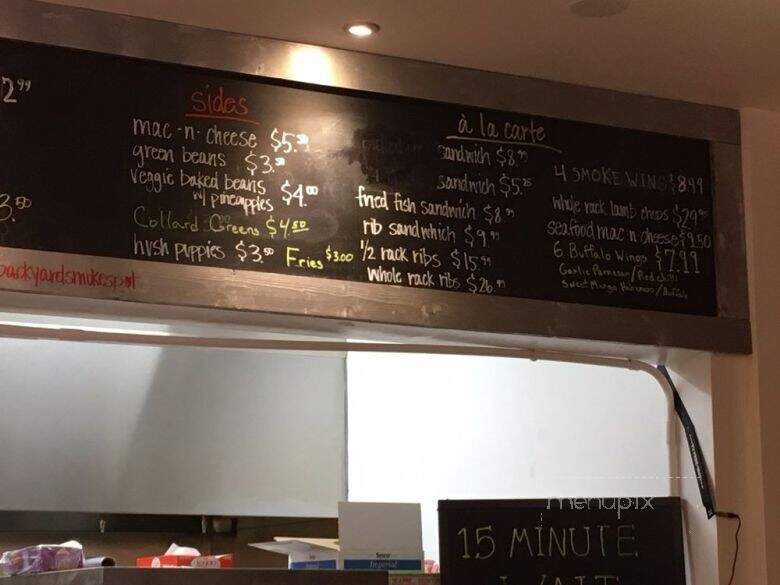 2.99
3.50
sides
mac-n-cheese
green beans $3.50
veggie baked beans
w/ pineapples $4.00
Collard Greens $4.50
hush puppies $3.50
Fries $3.00
à la carte
sandwich
sandwich
fried fish sandwich
rib sandwhich
1/2 rack ribs
whole rack ribs
4 SMOKE WINGS $8.99
whole rack lamb chops
seafood mac n cheese $9.50
6 Buffalo Wings $7.99
Garlic Parmesan / Red chili
Sweet Mango Habanero / Buffalo
backyardsmokespot
menupix
15 MINUTE
WAIT
Sysco
Imperial